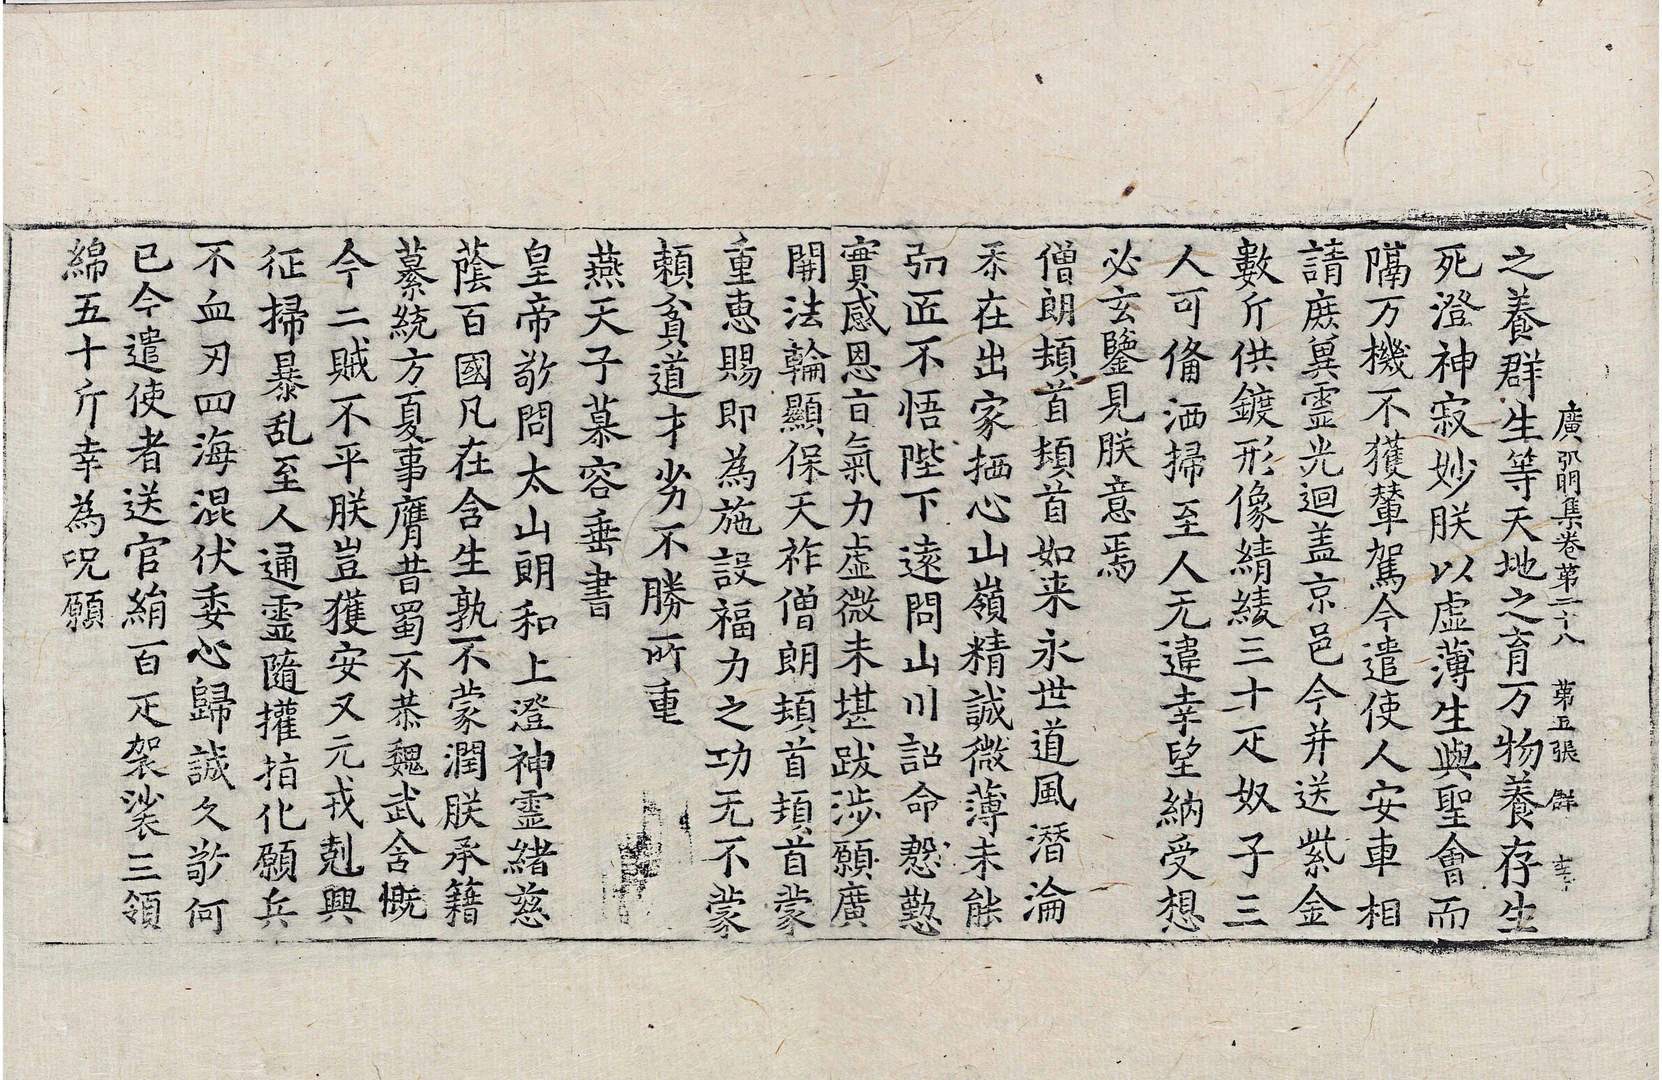 廣弘明集卷第二十八 第五張 群
之養群生等天地之育万物養存生
死澄神寂妙朕以虛薄生與聖會而
隔万機不獲輦駕今遣使人安車相
請庶冀霊光迴盖京邑今并送紫金
數斤供鍍形像綪綾三十疋奴子三
人可俻洒掃至人无違幸望納受想
必玄鑒見朕意焉
僧朗頓首頓首如来永世道風潜淪
忝在出家栖心山嶺精誠微薄未能
弘匠不悟陛下逺問山川詔命慇懃
實感恩旨氣力虚微未堪跋涉願廣
開法輪顯保天祚僧朗頓首頓首蒙
重惠賜即為施設福力之功无不蒙
頼貧道才劣不勝所重
燕天子慕容垂書
皇帝敬問太山朗和上澄神霊緒慈
蔭百國凡在含生孰不蒙潤朕承籍
纂統方夏事膺昔蜀不恭魏武含慨
今二賊不平朕豈獲安又元戎剋興
征掃暴乱至人通霊隨權指化願兵
不血刃四海混伏委心歸誠久敬何
已今遣使者送官絹百疋袈裟三領
綿五十斤幸為呪願